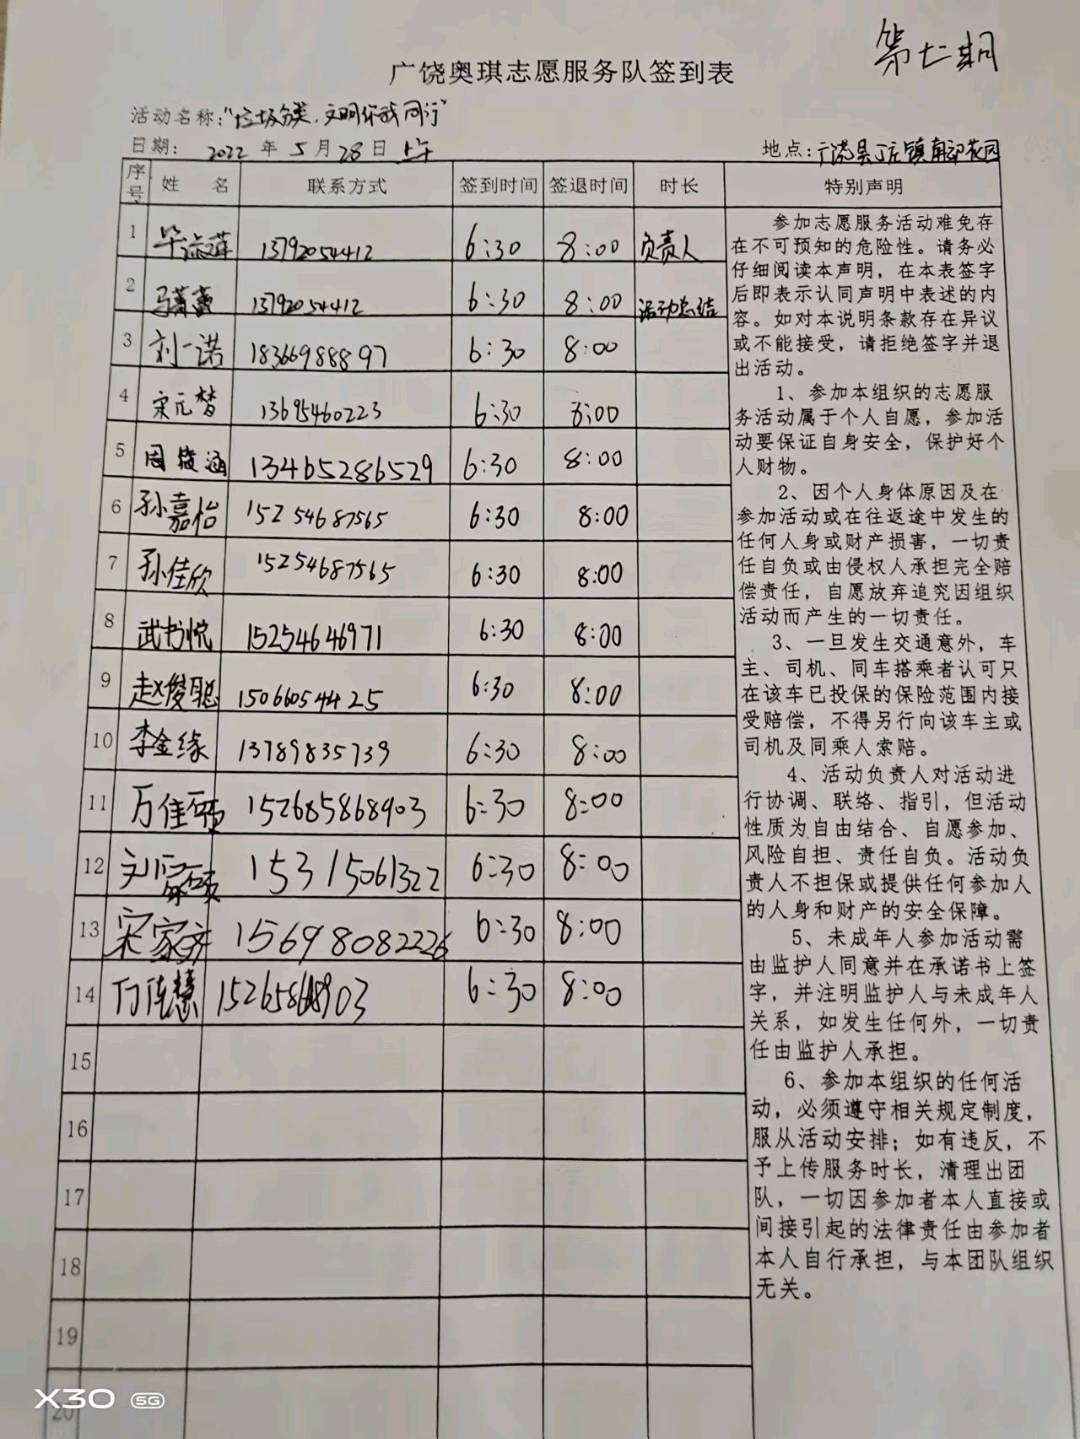 第七期
广饶奥琪志愿服务队签到表
活动名称："垃圾分类，文明你我同行"
日期： 2022 年 5 月 28 日 上午 地点：广饶县丁庄镇南部花园
序号 姓 名 联系方式 签到时间 签退时间 时长 特别声明
1 13792054412 6:30 8:00 负责人
2 13792054412 6:30 8:00 活动总结
3 刘一诺 18366988897 6:30 8:00
4 宋元梦 13695460223 6:30 8:00
5 周筱涵 13465286529 6:30 8:00
6 孙嘉怡 15254687565 6:30 8:00
7 孙佳欣 15254687565 6:30 8:00
8 武书悦 15254646971 6:30 8:00
9 赵俊聪 15066054425 6:30 8:00
10 李金缘 13789835739 6:30 8:00
11 万佳 152685868903 6:30 8:00
12 刘 15315061322 6:30 8:00
13 宋家齐 15698082226 6:30 8:00
14 6:30 8:00
15
16
17
18
19
20
参加志愿服务活动难免存
在不可预知的危险性。请务必
仔细阅读本声明，在本表签字
后即表示认同声明中表述的内
容。如对本说明条款存在异议
或不能接受，请拒绝签字并退
出活动。
1、参加本组织的志愿服
务活动属于个人自愿，参加活
动要保证自身安全，保护好个
人财物。
2、因个人身体原因及在
参加活动或在往返途中发生的
任何人身或财产损害，一切责
任自负或由侵权人承担完全赔
偿责任，自愿放弃追究因组织
活动而产生的一切责任。
3、一旦发生交通意外，车
主、司机、同车搭乘者认可只
在该车已投保的保险范围内接
受赔偿，不得另行向该车主或
司机及同乘人索赔。
4、活动负责人对活动进
行协调、联络、指引，但活动
性质为自由结合、自愿参加、
风险自担、责任自负。活动负
责人不担保或提供任何参加人
的人身和财产的安全保障。
5、未成年人参加活动需
由监护人同意并在承诺书上签
字，并注明监护人与未成年人
关系，如发生任何外，一切责
任由监护人承担。
6、参加本组织的任何活
动，必须遵守相关规定制度，
服从活动安排；如有违反，不
予上传服务时长，清理出团
队，一切因参加者本人直接或
间接引起的法律责任由参加者
本人自行承担，与本团队组织
无关。
X30 5G